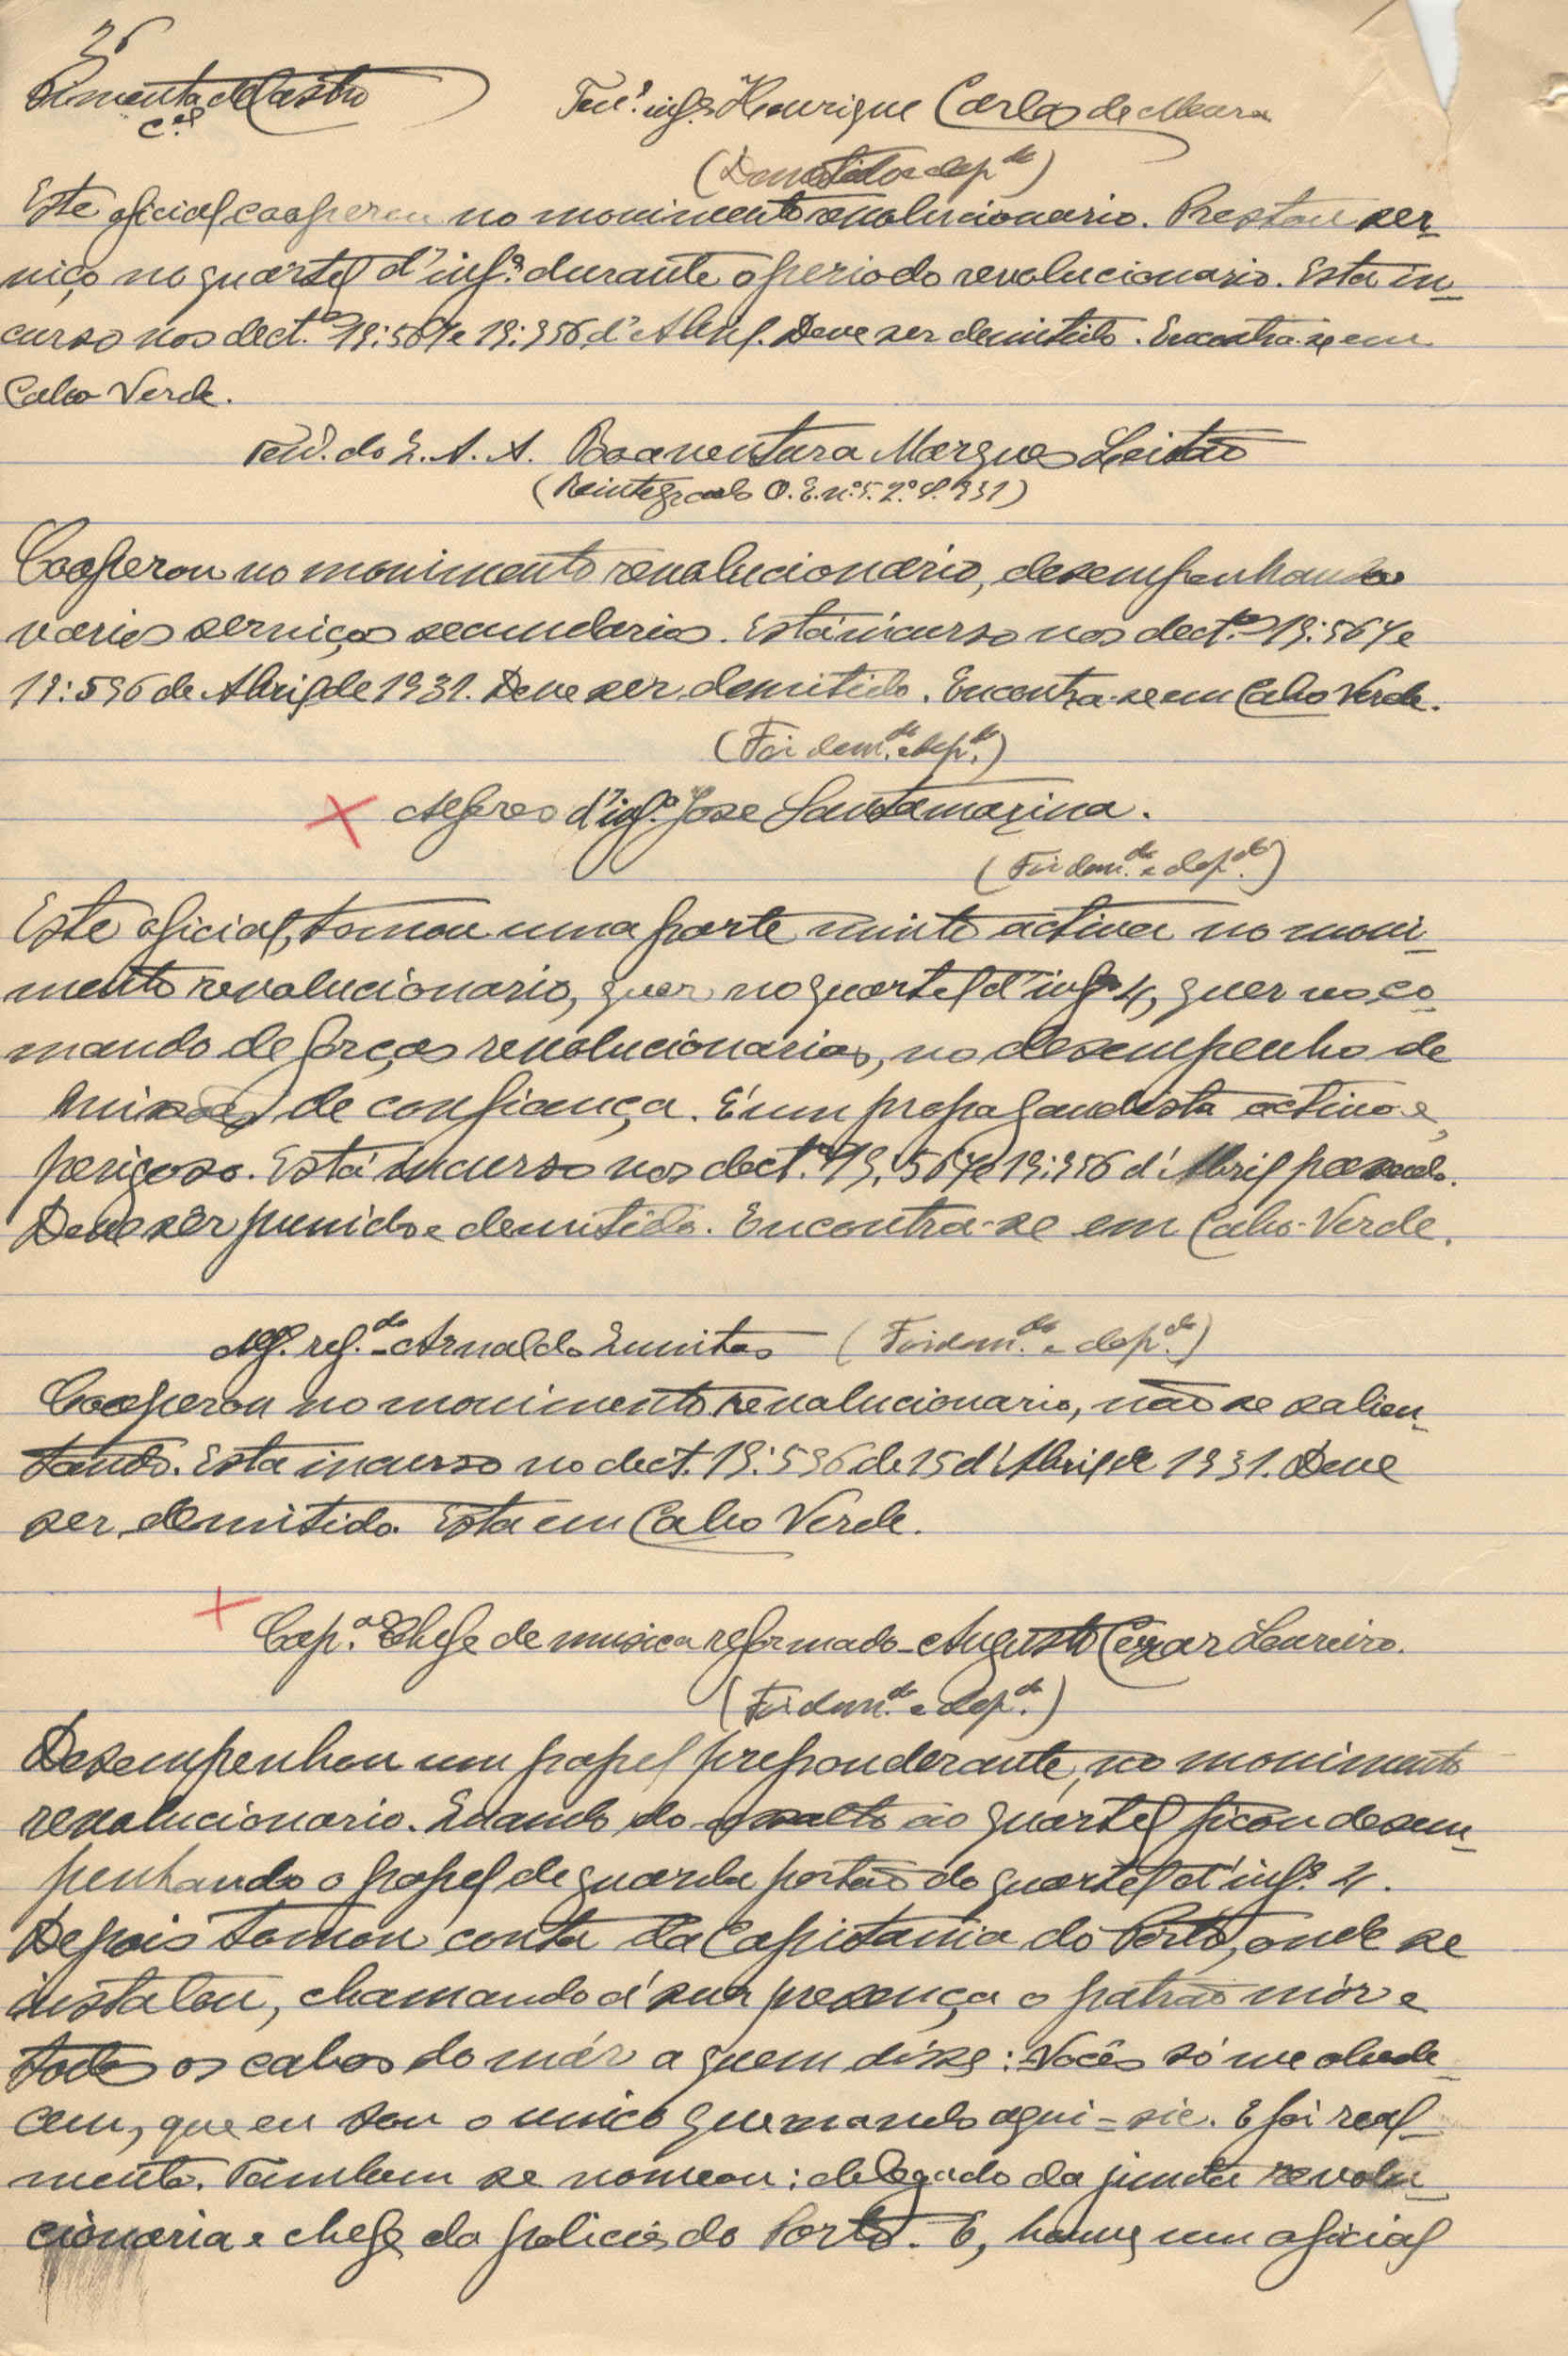 26
Pimenta de Castro
C.el
Ten.e inf.a Henrique Carlos de Meura
(Demitido e dep.do)
Este oficial cooperou no movimento revolucionario. Prestou ser-
viço no quartel d'inf.a durante o periodo revolucionario. Esta in-
curso nos dect.os 19:567 e 19:956 d'Abril. Deve ser demitido. Encontra-se em
Cabo Verde.
Ten. do Q. A. A. Boaventura Marques Leitão
(Reintegrado O. E. n.º 5. 2.ª S. 931)
Cooperou no movimento revolucionário, desempenhando
varios serviços secundarios. Está incurso nos dect.os 19:567 e
19:596 de Abril de 1931. Deve ser demitido. Encontra-se em Cabo Verde.
(Foi dem.do e dep.do)
Alferes d'inf.a Jose Santamarina.
(Foi dem.do e dep.do)
Este oficial, tomou uma parte muito activa no movi-
mento revolucionario, quer no quartel d'inf.a 4, quer no co-
mando de forças revolucionarias, no desempenho de
missões de confiança. É um propagandista activo e
perigoso. Está incurso nos dect.os 19.567 e 19:956 d'Abril passado.
Deve sêr punido e demitido. Encontra-se em Cabo-Verde.
Alf. ref.do - Arnaldo Quuitas (Foi dem.do e dep.do)
Cooperou no movimento revolucionario, não se salien-
tando. Esta incurso no dect. 19:596 de 15 d'Abril de 1931. Deve
ser demitido. Esta em Cabo Verde.
Cap.am Chefe de musica reformado - Augusto Cezar Loureiro.
(Foi dem.do e dep.do)
Desempenhou um papel preponderante, no movimento
revolucionario. Quando do assalto ao quartel ficou desem-
penhando o papel de guarda portão do quartel d'inf.a 4.
Depois tomou conta da Capitania do Porto, onde se
instalou, chamando á sua presença o patrão mór e
todos os cabos do már a quem disse: Vocês só me obede-
cem, que eu sou o unico que mando aqui - sic. E foi real-
mente. Tambem se nomeou: delegado da junta revolu-
cionaria e chefe da policia do Porto. E, houve um oficial